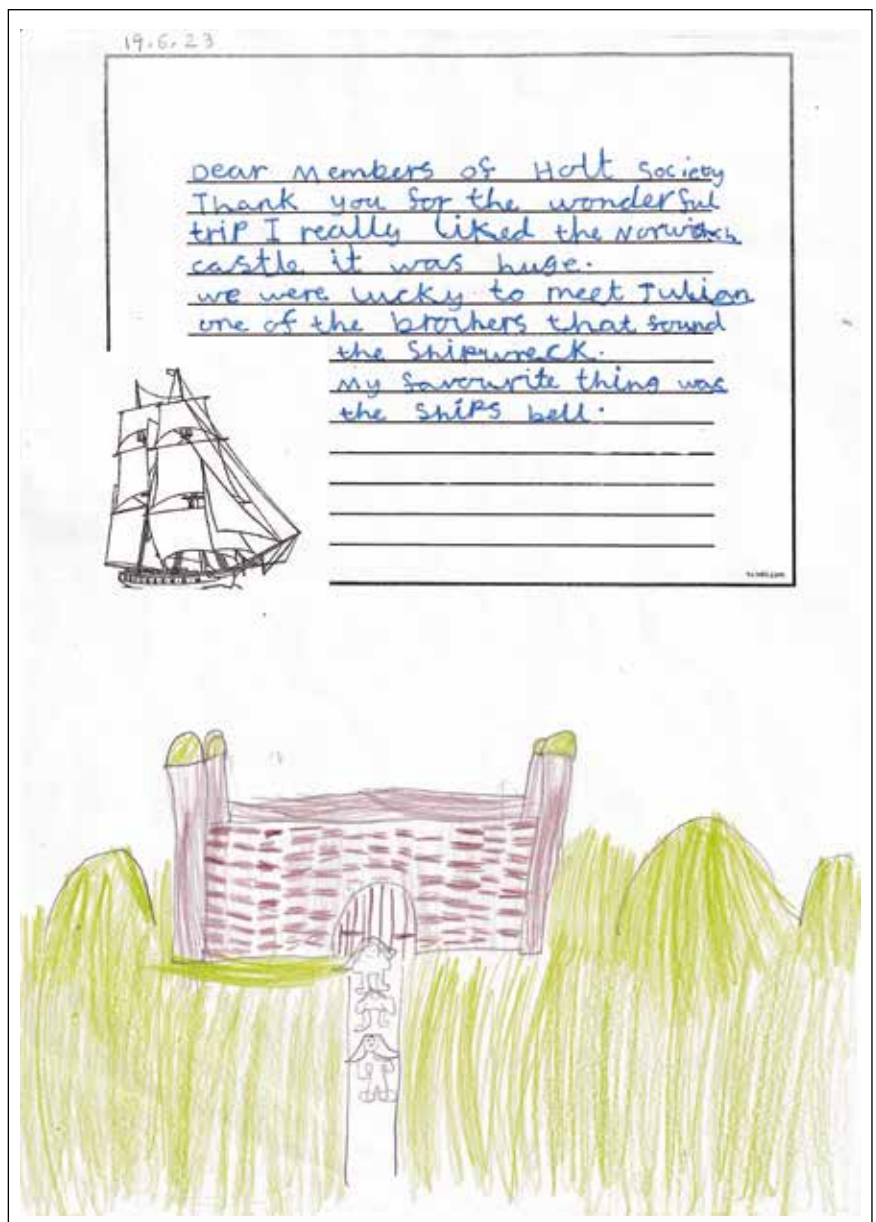 19.6.23
Dear Members of Holt Society
Thank you for the wonderful
trip I really liked the Norwich
castle it was huge.
we were lucky to meet Julian
one of the brothers that found
the Shipwreck.
My favourite thing was
the ships bell.